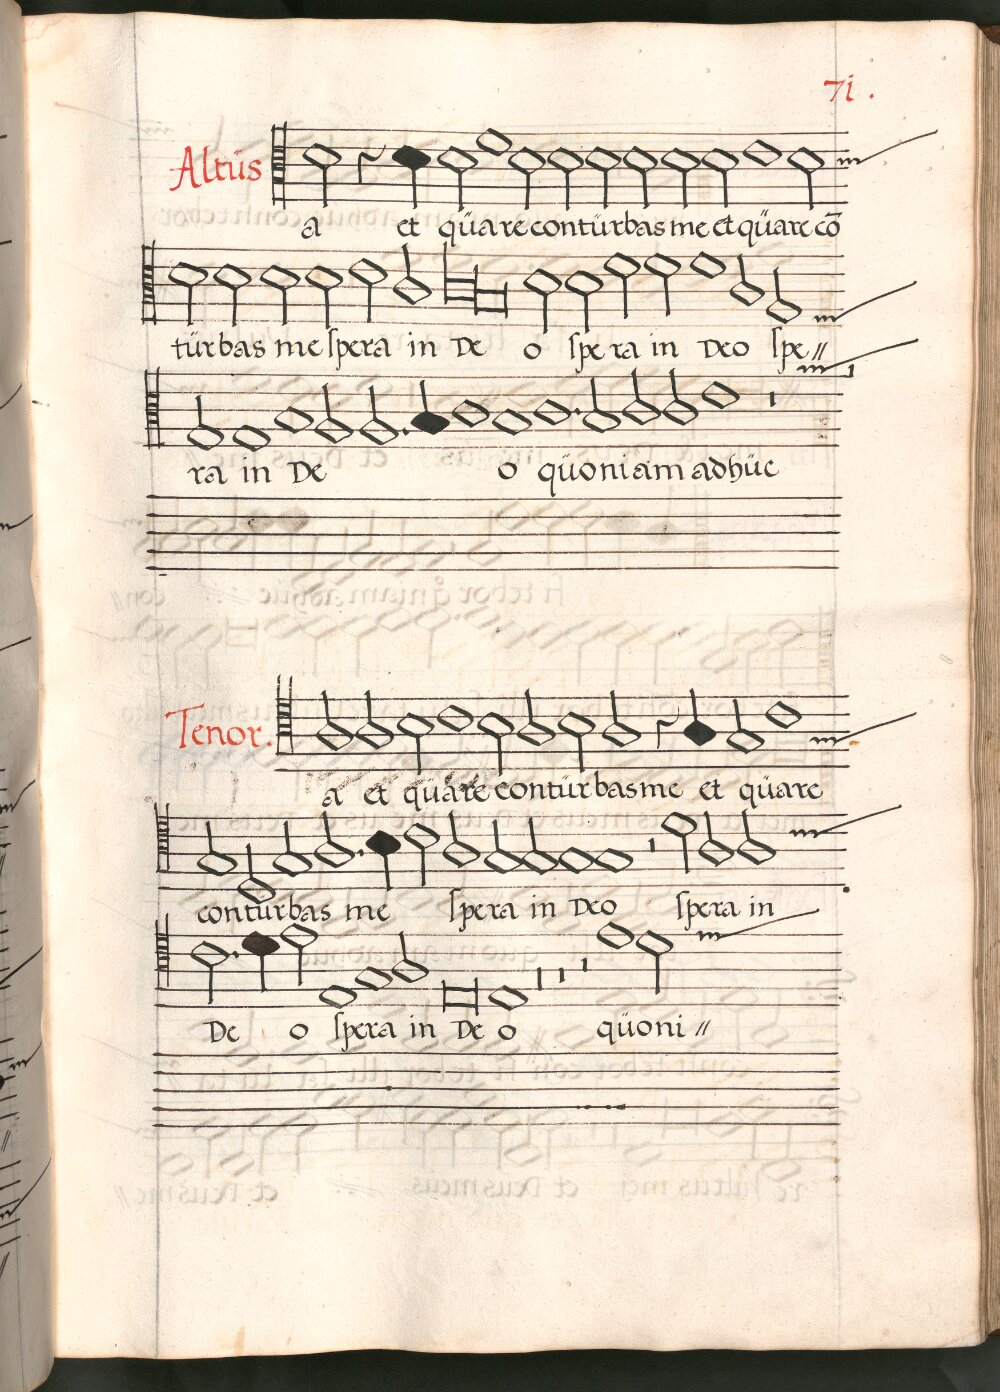 71.
Altus
a et quare conturbas me et quare cō
turbas me spera in De o spe ra in Deo spe//
ra in De o quoniam adhuc
Tenor.
a et quare conturbas me et quare
conturbas me spera in Deo spera in
De o spera in De o quoni //